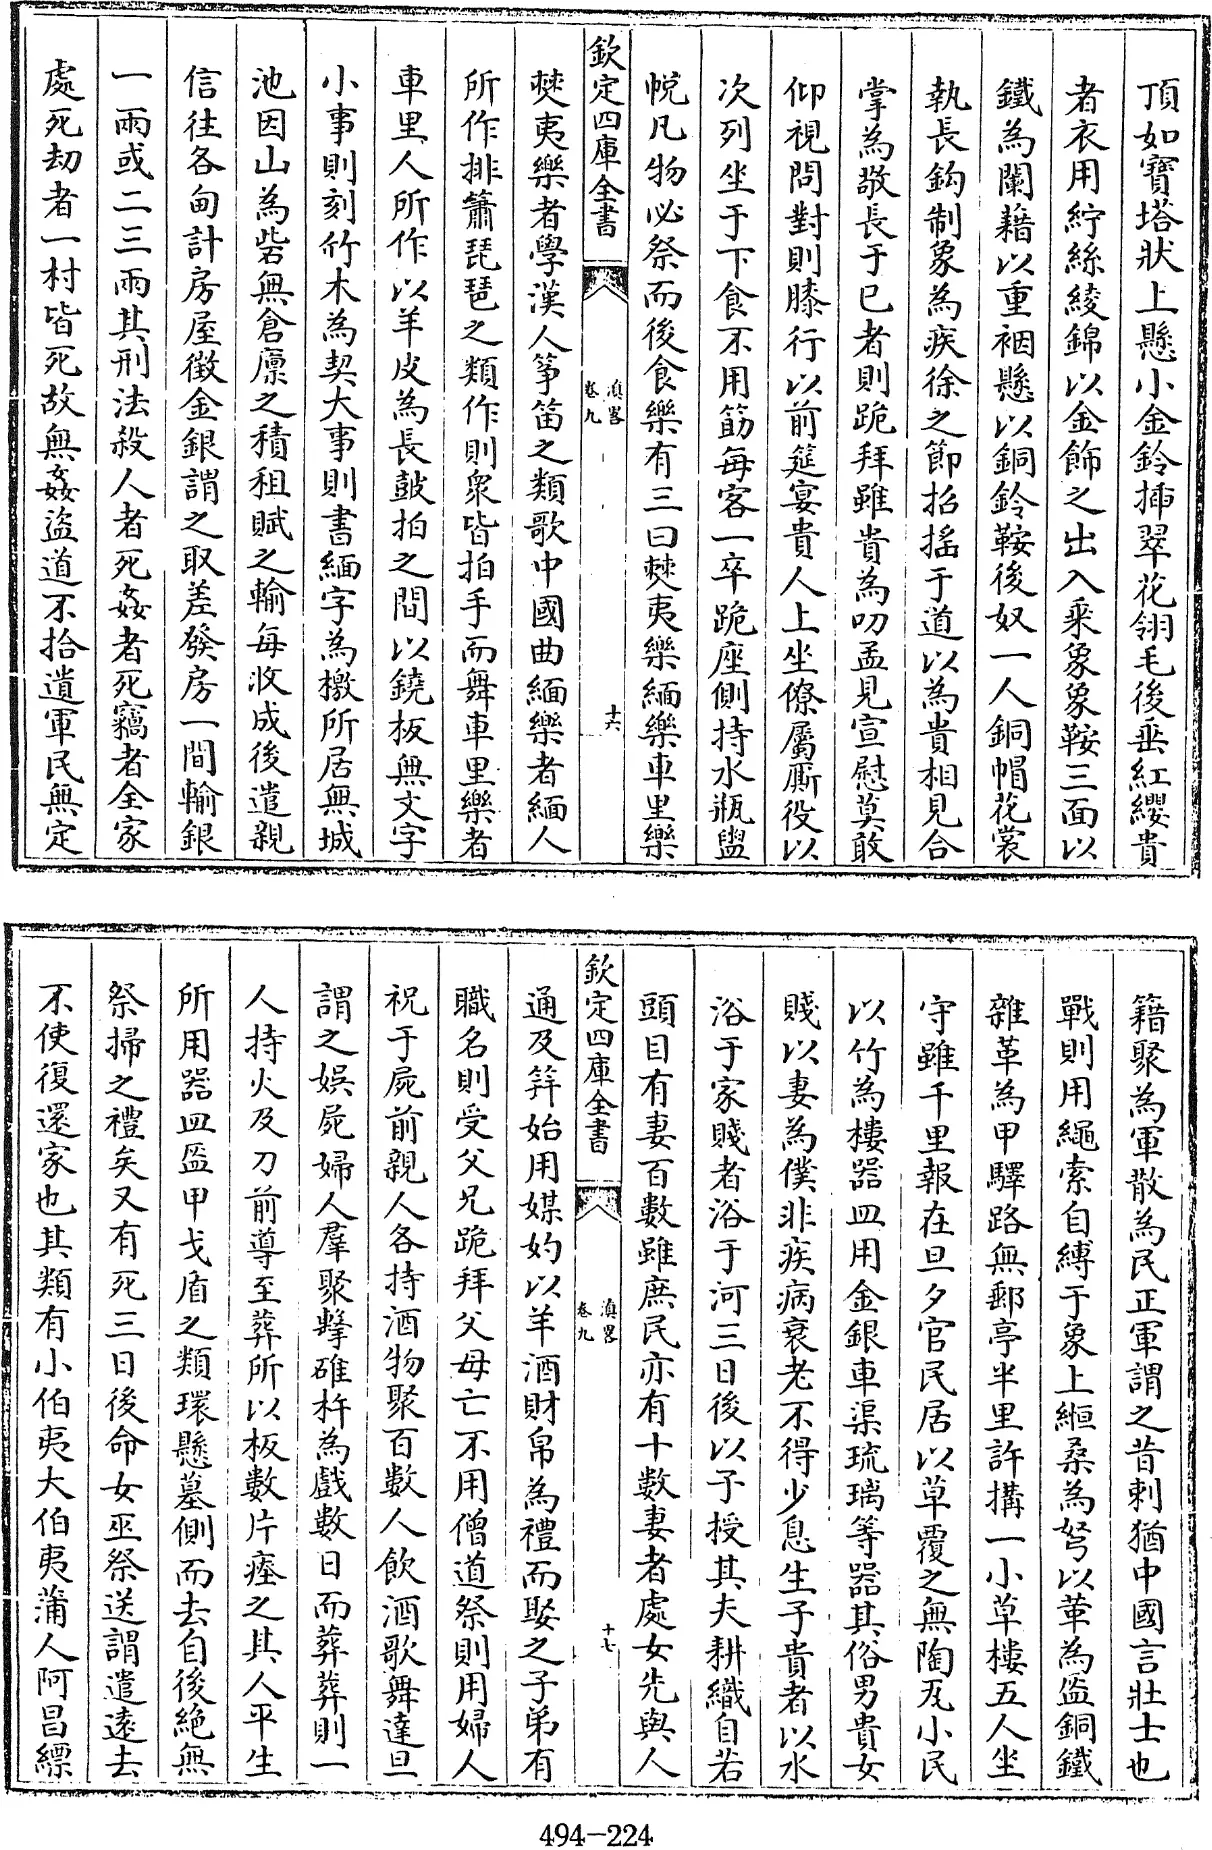 頂如寶塔狀上懸小金鈴挿翠花翎毛後垂紅纓貴
者衣用紵絲綾錦以金飾之出入乘象象鞍三面以
鐵為闌藉以重裀懸以銅鈴鞍後奴一人銅帽花裳
執長鈎制象為疾徐之節招搖于道以為貴相見合
掌為敬長于已者則跪拜雖貴為叨孟見宣慰莫敢
仰視問對則膝行以前筵宴貴人上坐僚屬厮役以
次列坐于下食不用筯每客一卒跪座側持水瓶盥
帨凡物必祭而後食樂有三曰僰夷樂緬樂車里樂
欽定四庫全書
滇畧
卷九
十六
僰夷樂者學漢人箏笛之類歌中國曲緬樂者緬人
所作排簫琵琶之類作則衆皆拍手而舞車里樂者
車里人所作以羊皮為長鼓拍之間以鐃板無文字
小事則刻竹木為契大事則書緬字為檄所居無城
池因山為砦無倉廪之積租賦之輸每收成後遣親
信往各甸計房屋徵金銀謂之取差發房一間輸銀
一兩或二三兩其刑法殺人者死姦者死竊者全家
處死刼者一村皆死故無姦盜道不拾遺軍民無定
籍聚為軍散為民正軍謂之昔剌猶中國言壯士也
戰則用繩索自縛于象上絙桑為弩以革為盔銅鐵
雜革為甲驛路無郵亭半里許搆一小草樓五人坐
守雖千里報在旦夕官民居以草覆之無陶瓦小民
以竹為樓器皿用金銀車渠琉璃等器其俗男貴女
賤以妻為僕非疾病衰老不得少息生子貴者以水
浴于家賤者浴于河三日後以子授其夫耕織自若
頭目有妻百數雖庶民亦有十數妻者處女先與人
欽定四庫全書
滇畧
卷九
十七
通及笄始用媒妁以羊酒財帛為禮而娶之子弟有
職名則受父兄跪拜父母亡不用僧道祭則用婦人
祝于屍前親人各持酒物聚百數人飲酒歌舞達旦
謂之娛屍婦人羣聚擊碓杵為戲數日而葬葬則一
人持火及刀前導至葬所以板數片瘞之其人平生
所用器皿盔甲戈盾之類環懸墓側而去自後絶無
祭掃之禮矣又有死三日後命女巫祭送謂遣遠去
不使復還家也其類有小伯夷大伯夷蒲人阿昌縹
494-224